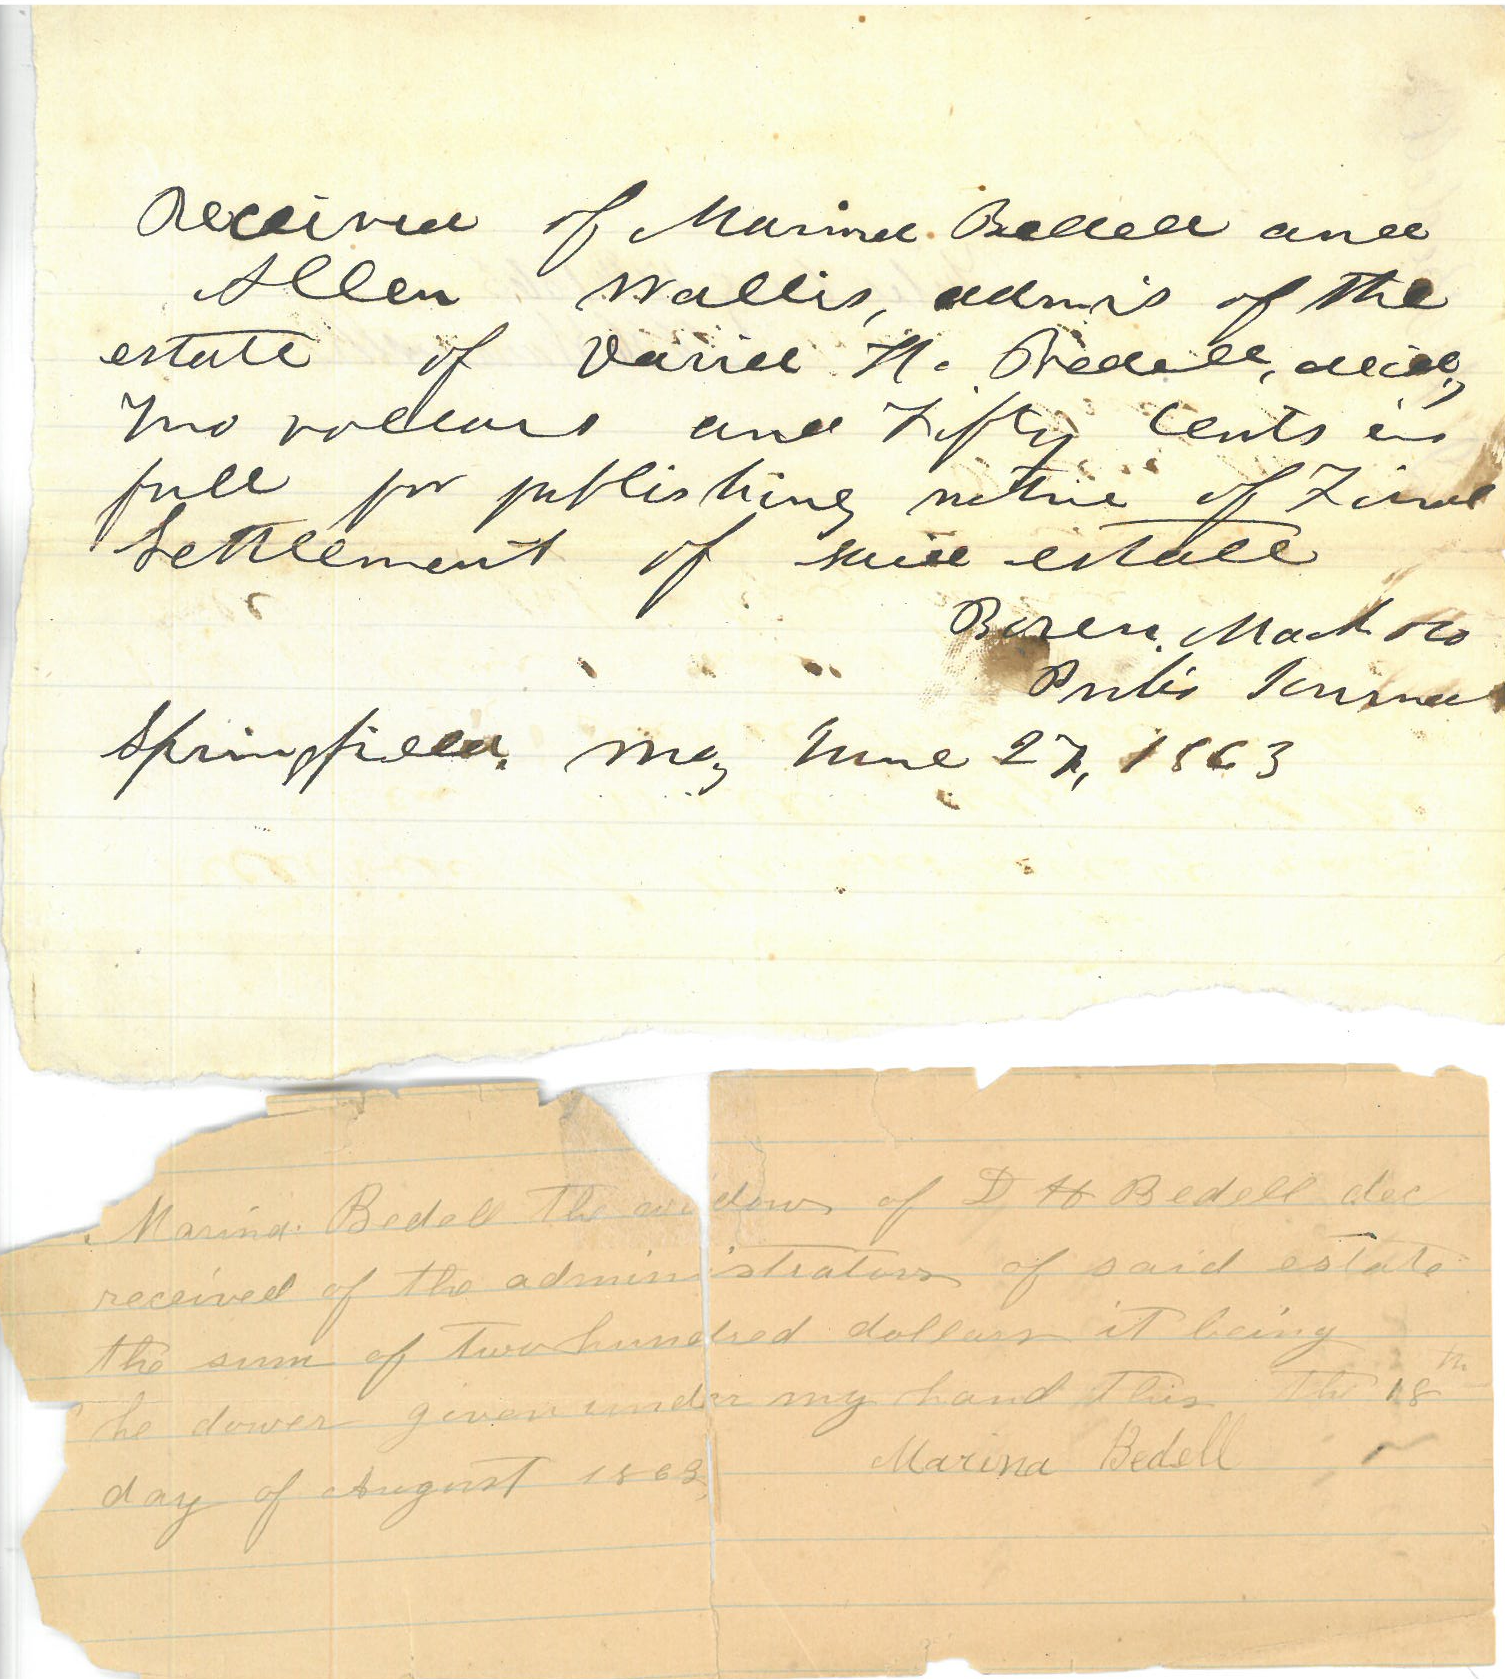 Received of Marina Bedell and
Allen Wallis, admrs of the
estate of Daniel H. Bedell, decd,
Two dollars and Fifty cents in
full for publishing notice of Final
Settlement of said estate
Boren, Mack & Co
Pub's Journal
Springfield, Mo, June 27, 1863
Marina Bedell the widow of D H Bedell dec
received of the administrators of said estate
the sum of two hundred dollars it being
he dower given under my hand this the 18th
day of August 1863
Marina Bedell